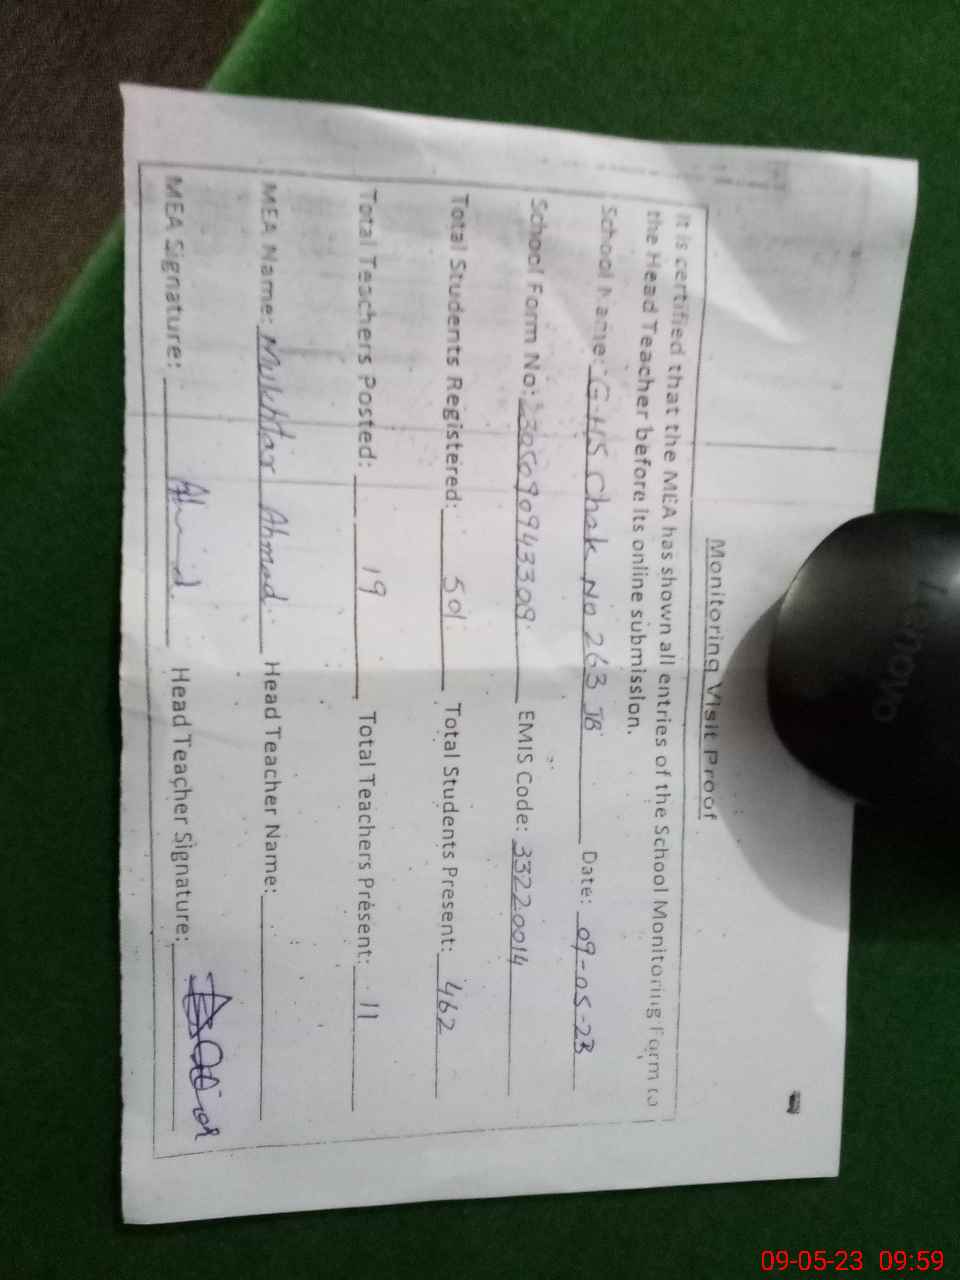 Monitoring Visit Proof
It is certified that the MEA has shown all entries of the School Monitoring Form to
the Head Teacher before its online submission.
School Name: G.HS Chak No 263 JB Date: 09-05-23
School Form No: 2305090943309 EMIS Code: 33220014
Total Students Registered: 501 Total Students Present: 462
Total Teachers Posted: 19 Total Teachers Present: 11
MEA Name: Mukhtar Ahmad Head Teacher Name:
MEA Signature: Head Teacher Signature:
Lenovo
09-05-23 09:59